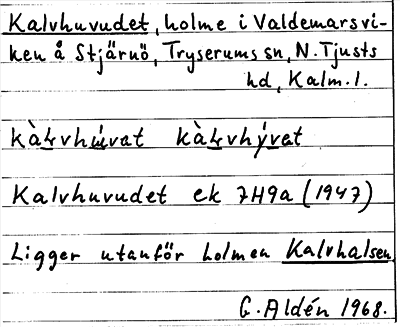 Kalvhuvudet, holme i Valdemarsvi-
ken å Stjärnö, Tryserums sn, N. Tjusts
hd, Kalm. l.
kàlvhúvat kàlvhývat
Kalvhuvudet ek 7H9a (1947)
Ligger utanför holmen Kalvhalsen.
G. Aldén 1968.